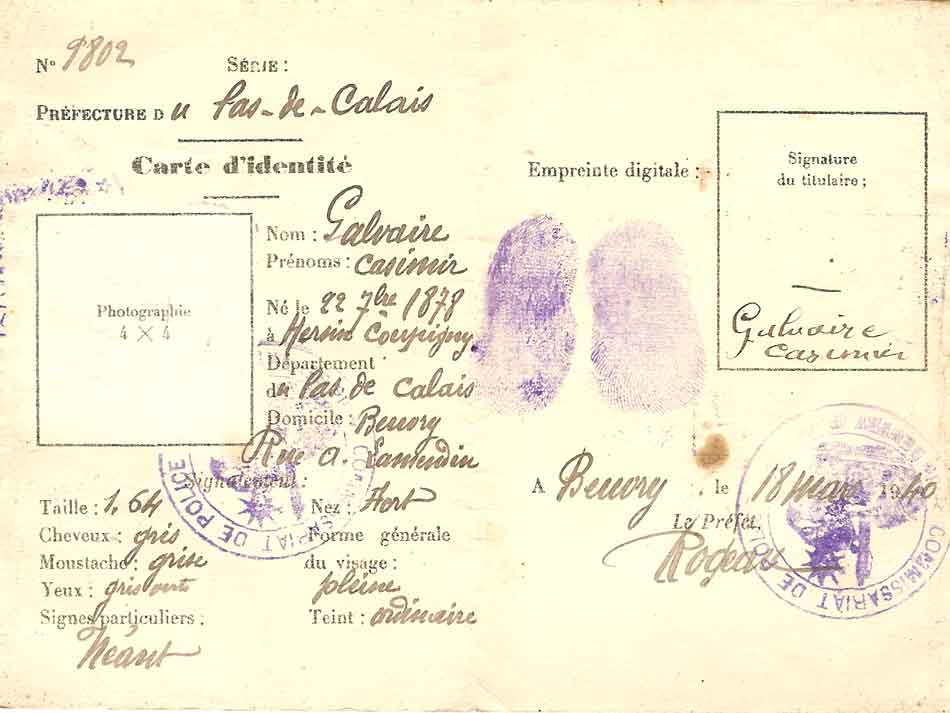 N° 9802 SÉRIE :
PRÉFECTURE DU Pas-de-Calais
Carte d'identité
Photographie
4 × 4
Nom : Galvaire
Prénoms : Casimir
Né le 22 7bre 1878
à Hersin Coupigny
Département
du Pas de Calais
Domicile : Beuvry
Rue A. Lamendin
Signalement :
Taille : 1,64
Cheveux : gris
Moustache : grise
Yeux : gris verts
Signes particuliers :
Néant
Nez : Fort
Forme générale
du visage :
pleine
Teint : ordinaire
COMMISSARIAT DE POLICE
Empreinte digitale :
Signature
du titulaire :
Galvaire
Casimir
A Beuvry . le 18 mars 1940
Le Préfet,
COMMISSARIAT DE POLICE